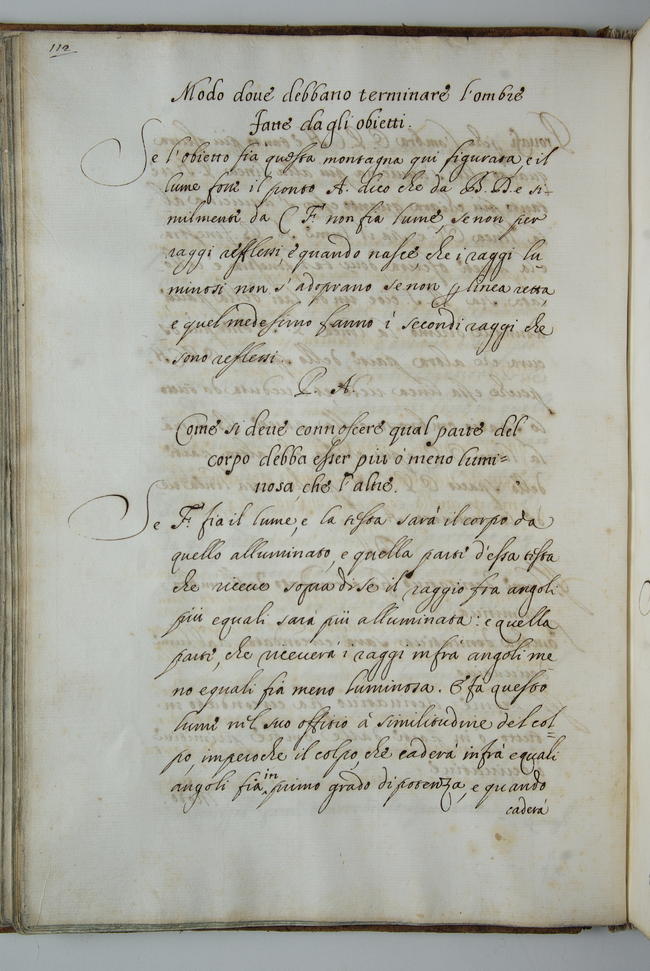 112
Modo doue debbano terminare l'ombre
fatte dagli obietti.
Se l'obietto fia questa montagna qui figurata, e il
lume fosse il ponto A. dico che da B. D. e si-
milmente da C F. non fia lume, se non per
raggi reflessi, e quando nasce, che i raggi lu-
minosi non s'adoprano se non p linea retta,
e quel medesimo fanno i secondi raggi che
sono reflessi.
P. A.
Come si deue connoscere qual parte del
corpo debba esser più ò meno lumi=
nosa che l'altre.
Se F. fia il lume, e la testa sarà il corpo da
quello alluminato, e quella parte d'essa testa
che riceue sopra di se il raggio fra angoli
più equali sarà più alluminata: e quella
parte, che riceuerà i raggi infrà angoli me-
no equali fia meno luminosa. E fa questo
lume nel suo offitio à similitudine del col-
po, imperoche il colpo, che caderà infrà equali
angoli fia in primo grado di potenza, e quando
caderà